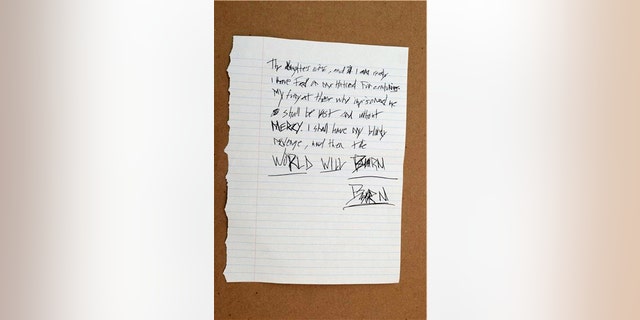 The          , and I am ready
I have Fed on my Hatred For centuries
My fury at those who imprisoned me
shall be vast and without
MERCY. I shall have my bloody
revenge, and then the
WORLD WILL BURN
BURN